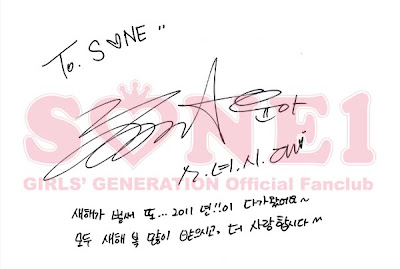 To. S♡NE "
윤아
소.녀.시.대
S♡NE1
GIRLS' GENERATION Official Fanclub
새해가 벌써 또... 2011 년!!이 다가왔어요~
모두 새해 복 많이 받으시고, 더 사랑합시다~